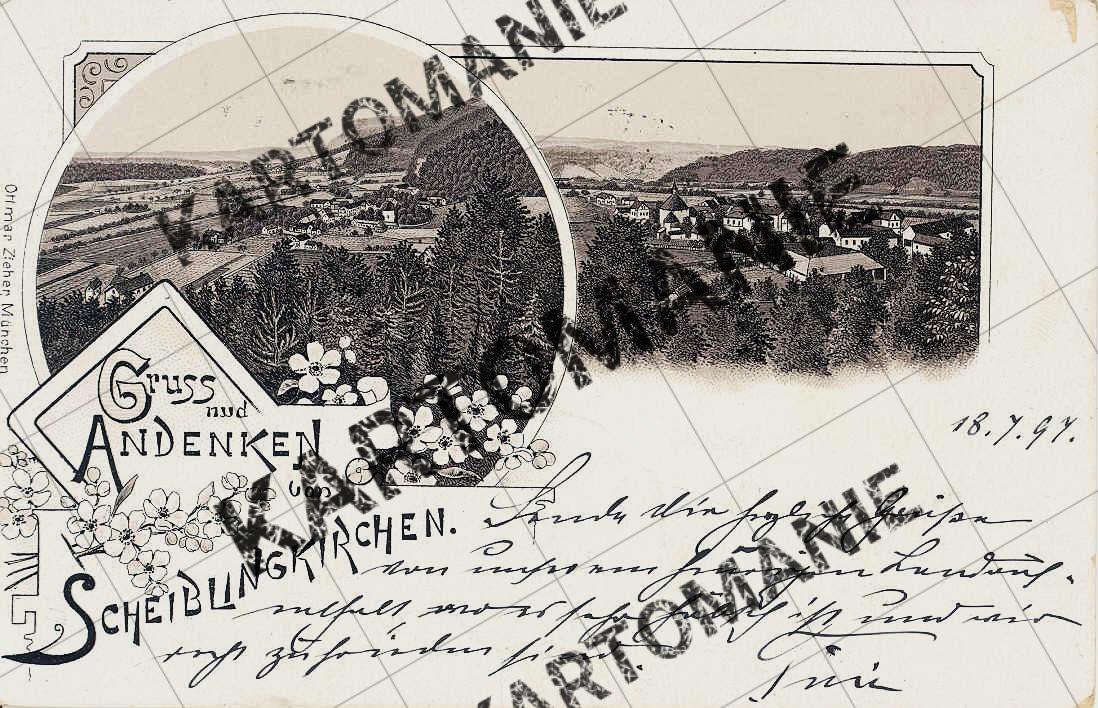 KARTOMANIE
KARTOMANIE
KARTOMANIE
KARTOMANIE
Ottmar Zieher München
Gruss
und
ANDENKEN
von
SCHEIBLINGKIRCHEN.
18.7.97.
Sende Dir herzliche Grüße
von unserem heurigen Landauf-
enthalt wo es sehr hübsch ist und wir
recht zufrieden sind.